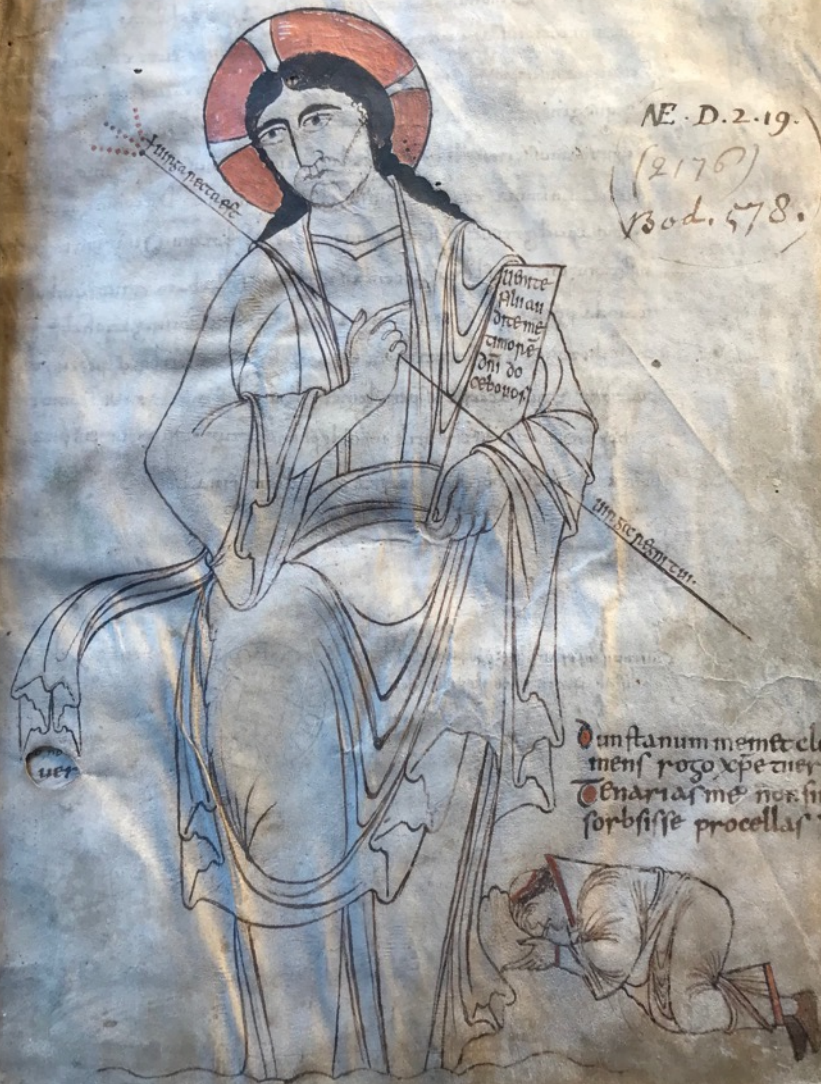 NE. D. 2. 19.
(2176)
Bod. 578.
+ uirga recta est
uenite
filii au
dite me
timorē
dn̄i do
cebo uos
uirga regni tui.
Dunstanum memet cle
mens rogo xp̄e tuer
Tenarias me non sin
sorbsisse procellas
uer